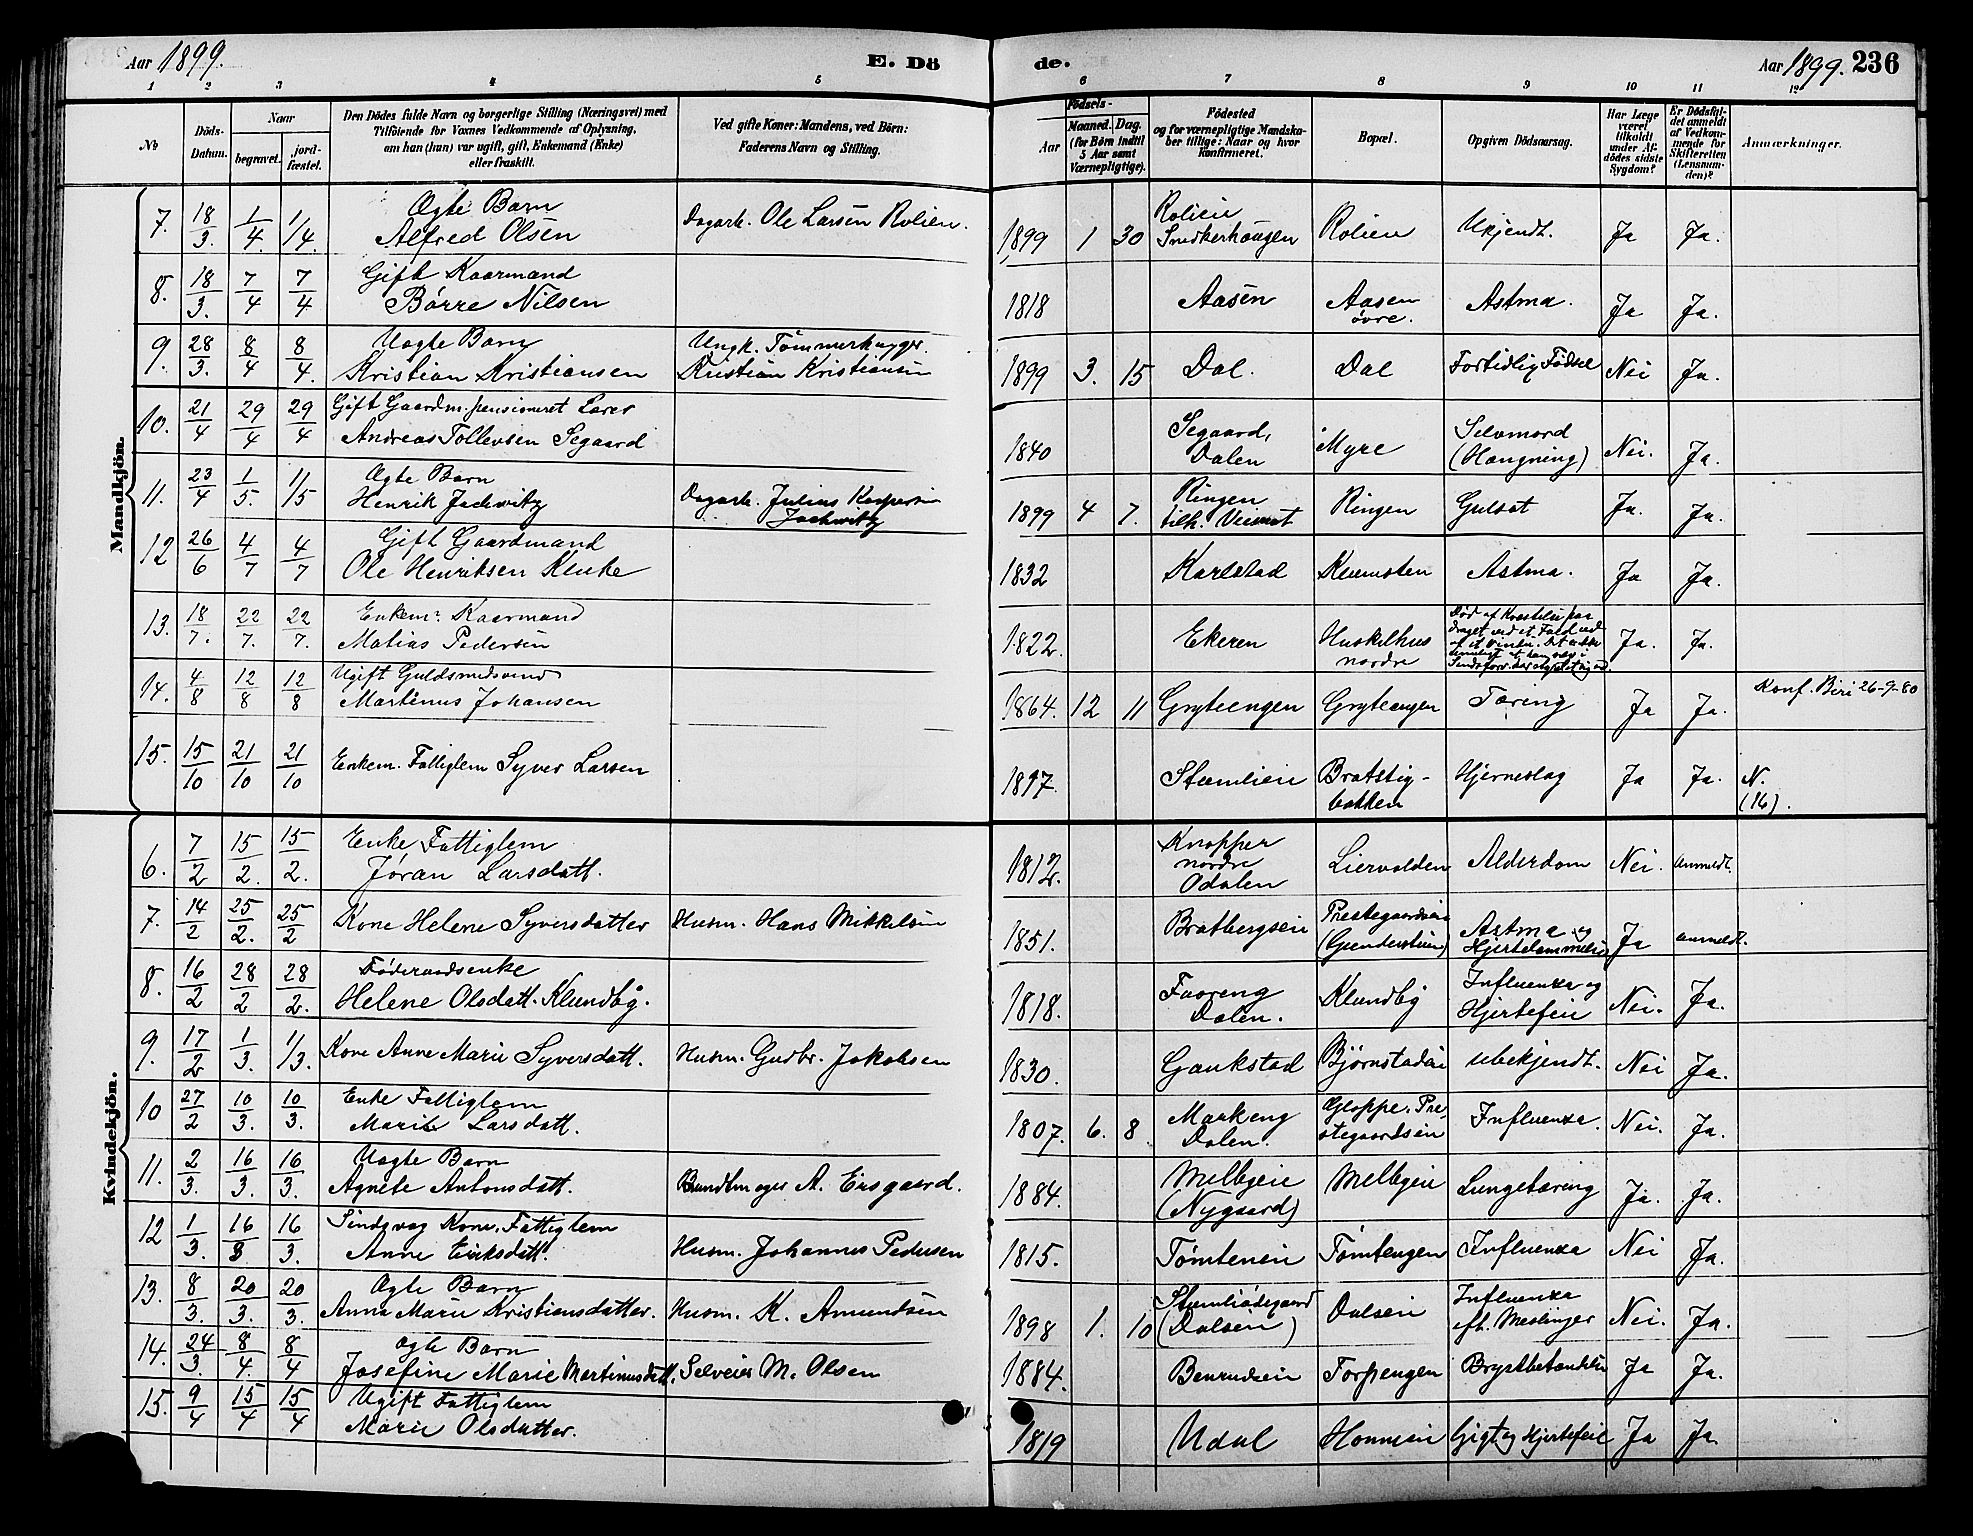 Aar 1899. E. Dö de. Aar 1899. 236
1 2 3 4 5 6 7 8 9 10 11 12
No Döds-Datum. Naar begravet. jordfæstet. Den Dödes fulde Navn og borgerlige Stilling (Næringsvei) med Tilföiende for Voxnes Vedkommende af Oplysning, om han (hun) var ugift, gift, Enkemand (Enke) eller fraskilt. Ved gifte Koner: Mandens, ved Börn: Faderens Navn og Stilling. Födsels- Aar Maaned. Dag. (for Börn indtil 5 Aar samt Værnepligtige). Födested og for værnepligtige Mandskaber tillige: Naar og hvor Konfirmeret. Bopæl. Opgiven Dödsaarsag. Har Læge været tilkaldt under Afdödes sidste Sygdom? Er Dödsfaldet anmeldt af Vedkommende for Skifteretten (Lensmanden)? Anmærkninger.
Mandkjön.
7. 18/3. 1/4 1/4. Ægte Barn Alfred Olsen Dagarb. Ole Larsen Rolien. 1899 1 30 Rolien Snedkerhaugen Rolien Ukjendt. Ja Ja.
8. 18/3. 7/4 7/4 Gift Kaarmand Børre Nilsen 1818 Aasen Aasen øvre. Astma. Ja Ja.
9. 28/3. 8/4 8/4. Uægte Barn Kristian Kristiansen Ungk. Tømmerhugger Kristian Kristiansen 1899 3. 15 Dal. Dal Fortidlig Fødsel Nei Ja.
10. 21/4 29/4 29/4 Gift Gaardm. pensioneret Lærer Andreas Tollevsen Segaard 1840 Segaard, Dalen Myre Selvmord (Hængning) Nei. Ja.
11. 23/4 1/5. 1/5 Ægte Barn Henrik Jachwitz Dagarb. Julius Kaspersen Jachwitz 1899 4 7. Ringen tilh. Veisvet Ringen Gulsot Ja. Ja.
12 26/6 4/7 4/7 Gift Gaardmand Ole Henriksen Kluke 1832 Karlstad Klemsten Astma. Ja Ja.
13. 18/7. 22/7. 22/7. Enkem. Kaarmand Matias Pedersen 1822. Ekeren Huskelhus nordre Død af Kvæstelse paadraget ved et Fald ned Ja. Ja.
14. 4/8 12/8 12/8 Ugift Guldsmedsvend Martinus Johansen 1864. 12 11 Gryteengen Gryteengen Tæring Ja Ja. Konf. Biri 26-9-80
15. 15/10 21/10 21/10 Enkem. Fattiglem Syver Larsen 1897. Stumlien Bratstigbakken Hjerneslag Ja Ja. N. (16).
Kvindekjön.
6. 7/2 15/2. 15/2. Enke Fattiglem Jøran Larsdatt. 1812. Knapper nordre Odalen Liervolden Alderdom Nei. anmeldt.
7. 14/2 25/2. 25/2 Kone Helene Syversdatter Husm. Hans Mikkelsen 1851. Bratbergseie Prestegaardseie (Gundersteen) Astma og Hjertelammelse Ja anmeldt.
8. 16/2 28/2 28/2. Føderaadsenke Helene Olsdatt. Klundby. 1818. Faareng Dalen. Klundby Influenza og Hjertefeil Nei. Ja.
9. 17/2 1/3. 1/3. Kone Anne Marie Syversdatt. Husm. Gudbr. Jakobsen 1830. Gaukstad Bjørnstadeie ubekjendt. Nei Ja.
10 27/2 10/3. 10/3. Enke Fattiglem Marie Larsdatt. 1807. 6. 8 Markeng Dalen. Gloppe. Prestegaardseie Influenza. Nei. Ja.
11. 2/3. 16/3. 16/3. Uægte Barn Agnete Antonsdatt. Bundtmager A. Ersgaard. 1884. Melbyeie (Nygaard) Melbyeie Lungetæring Ja. Ja.
12 1/3. 16/3 16/3. Sindsvag Kone, Fattiglem Anne Eriksdatt. Husm. Johannes Pedersen 1815. Tømteneie Tømtengen Influenza Nei Ja.
13. 8/3. 20/3. 20/3. Ægte Barn Anna Marie Kristiansdatter. Husm. K. Amundsen 1898 1. 10 Stumliødegaard (Dalseie) Dalseie Influenza eft. Meslinger Nei. Ja.
14. 24/3. 8/4. 8/4 Ægte Barn Josefine Marie Martinusdatt. Selveier M. Olsen 1884. Benrudeie Torpengen Brystbetændelse Ja Ja.
15. 9/4 15/4 15/4 Ugift Fattiglem Marie Olsdatter. 1819 Udal Honneeie Gigt og Hjertefeil Ja Ja.